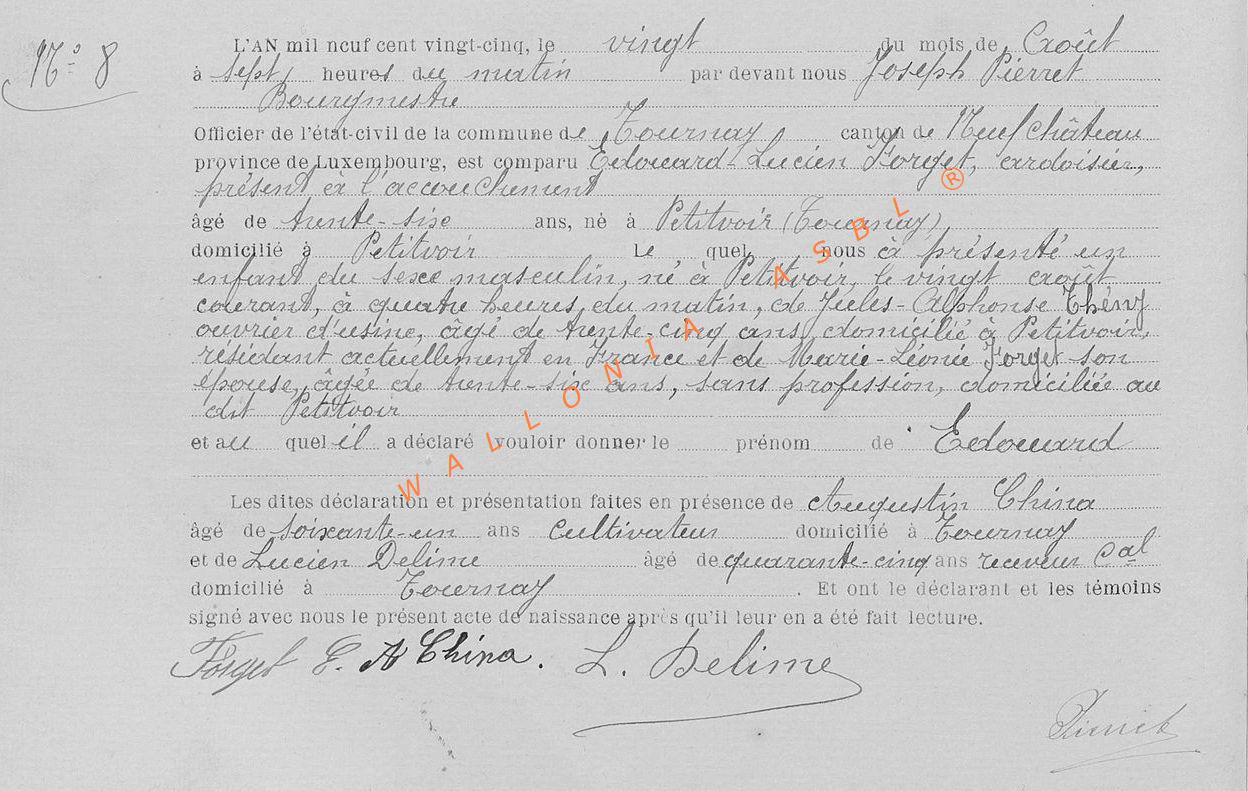 N° 8
L'AN mil neuf cent vingt-cinq, le vingt du mois de Août
à sept heures du matin par devant nous Joseph Pierret
Bourgmestre
Officier de l'état-civil de la commune de Tournay canton de Neufchâteau
province de Luxembourg, est comparu Edouard-Lucien Forget, ardoisier,
présent à l'accouchement
âgé de trente-six ans, né à Petitvoir (Tournay)
domicilié à Petitvoir Le quel nous à présenté un
enfant du sexe masculin, né à Petitvoir, le vingt août
courant, à quatre heures du matin, de Jules-Alphonse Thény
ouvrier d'usine, âgé de trente-cinq ans, domicilié à Petitvoir,
résidant actuellement en France et de Marie-Léonie Forget son
épouse, âgée de trente-six ans, sans profession, domiciliée au
dit Petitvoir
et au quel il a déclaré vouloir donner le prénom de Edouard
Les dites déclaration et présentation faites en présence de Augustin China
âgé de soixante-un ans cultivateur domicilié à Tournay
et de Lucien Delime âgé de quarante-cinq ans receveur Cal
domicilié à Tournay. Et ont le déclarant et les témoins
signé avec nous le présent acte de naissance après qu'il leur en a été fait lecture.
Forget E. A China. L. Delime
Pierret
WALLONIA ASBL ®